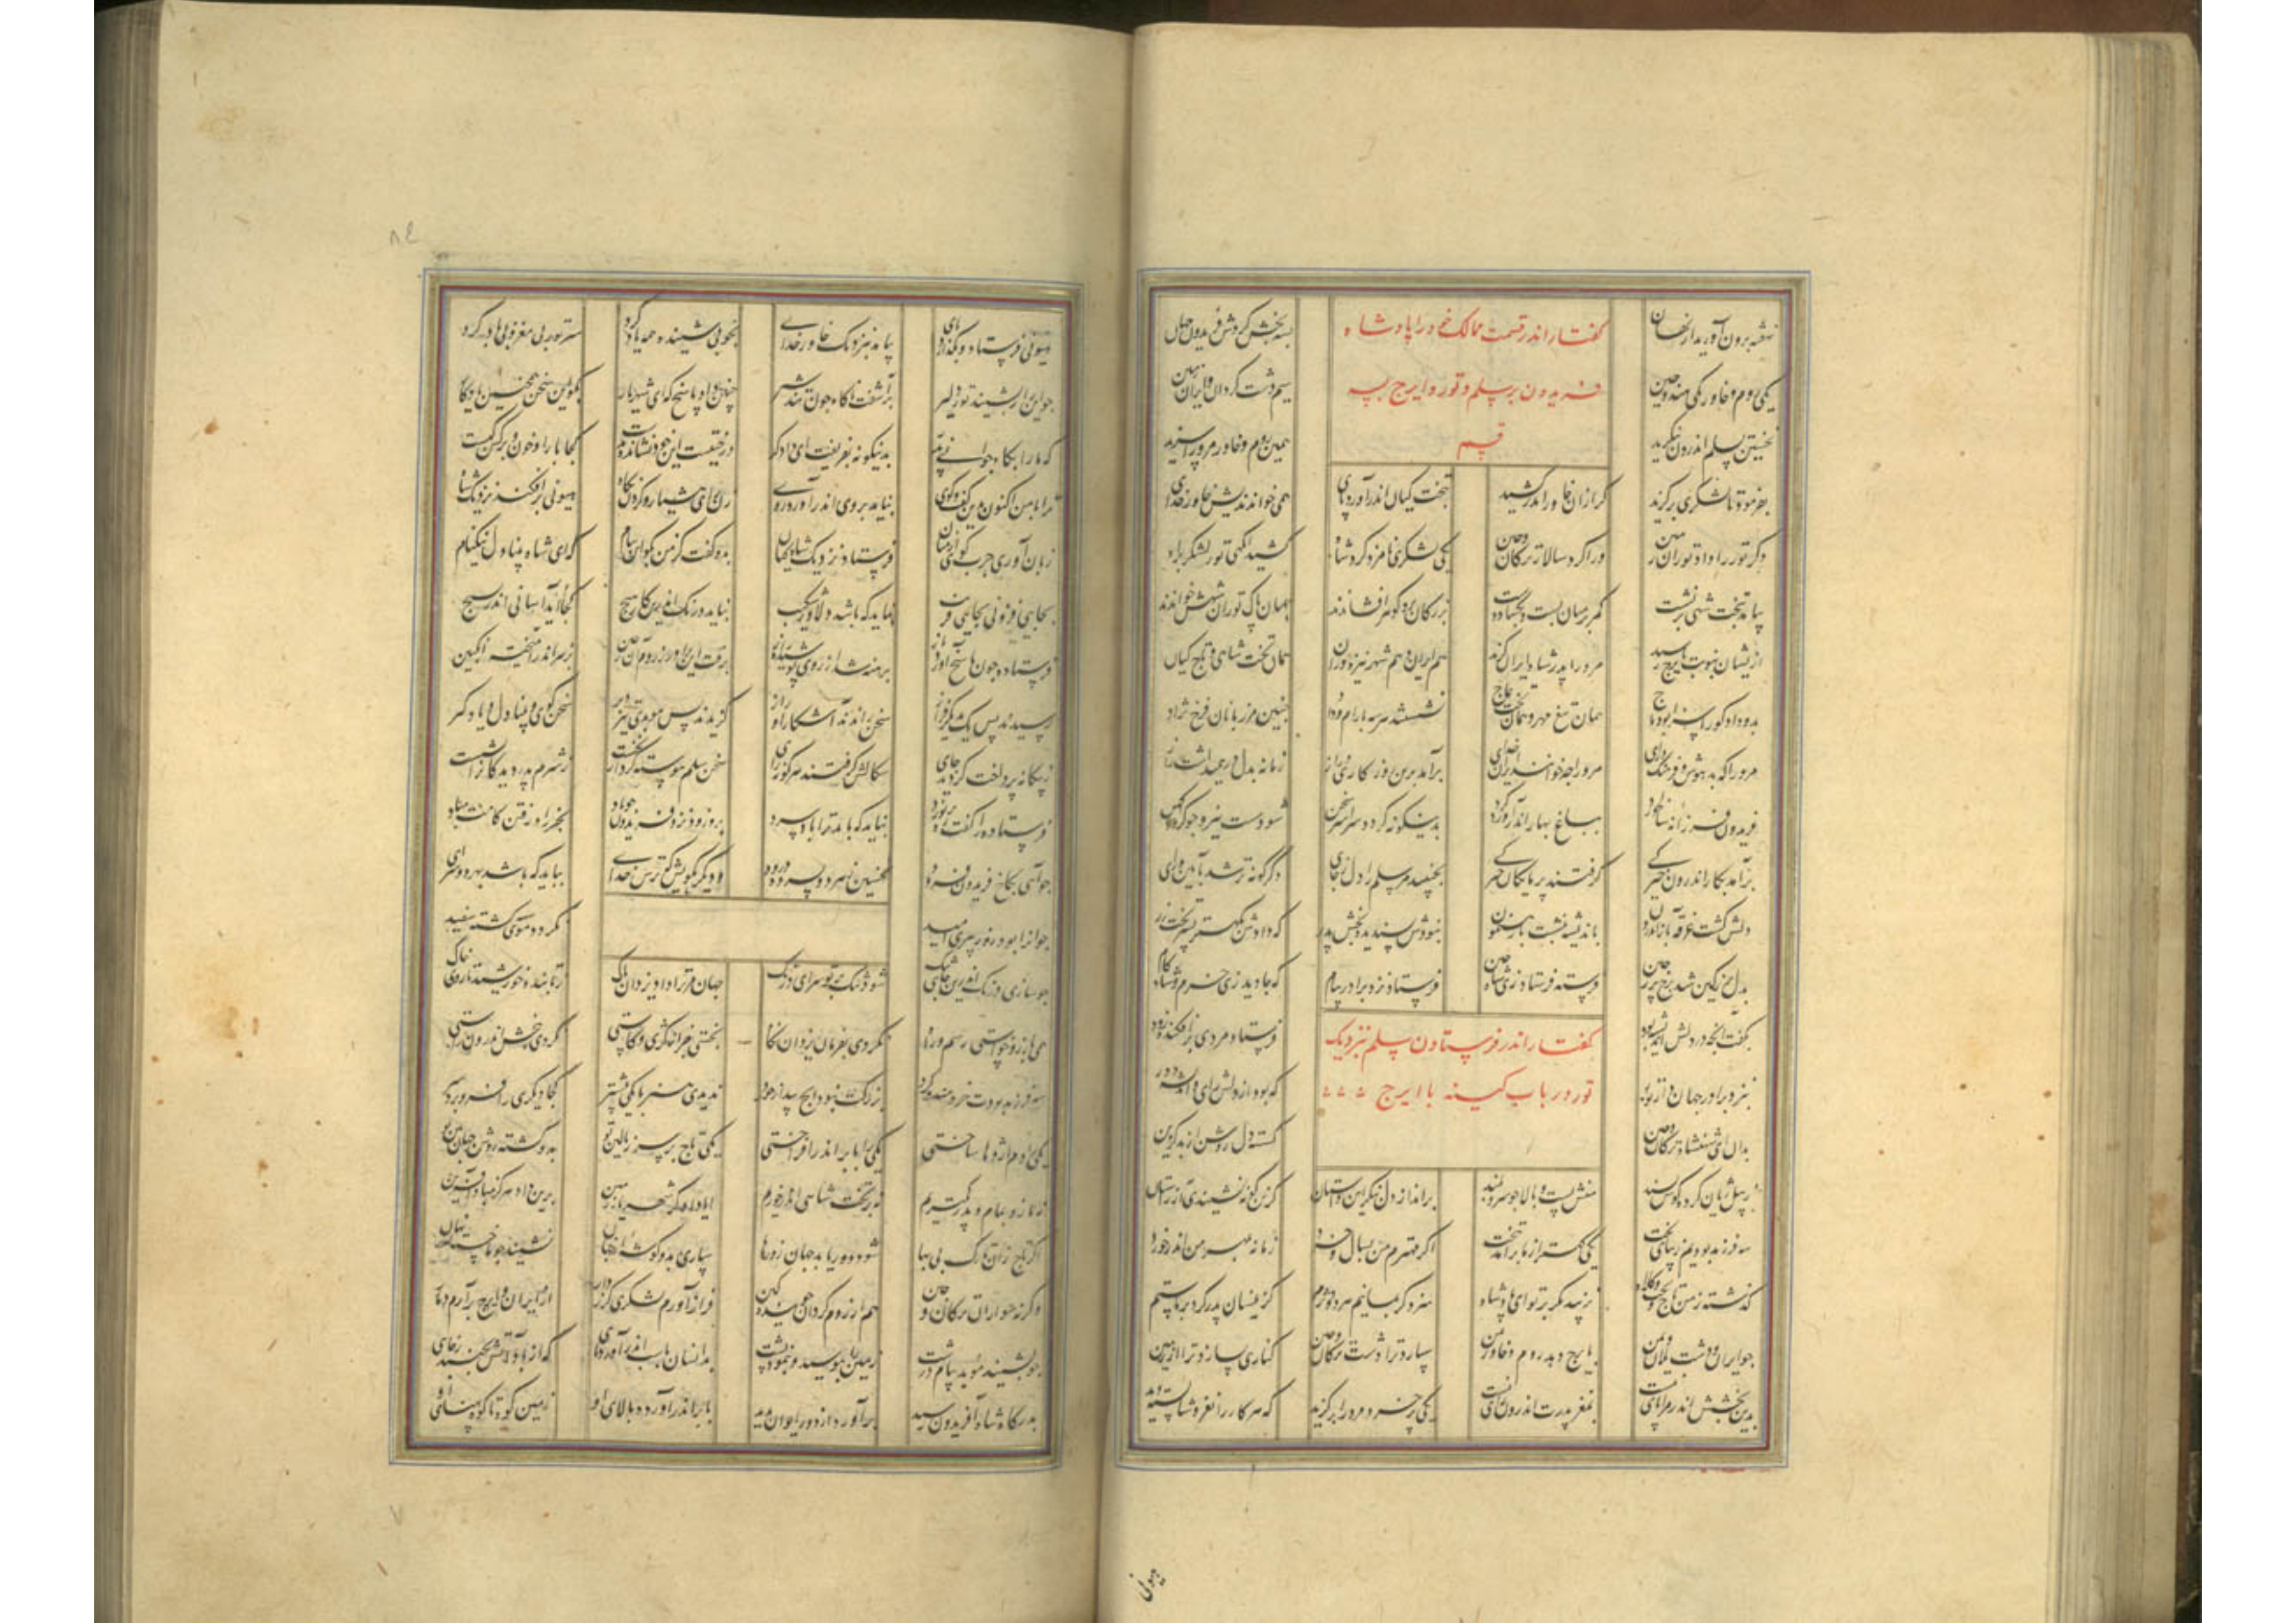 نهفته برون آورید از نهان بسه بخش کردش فریدون جهان
گفتار اندر قسمت ممالک خود را پادشاه
فریدون بر سلم و تور و ایرج بسه
قسم
یکی روم و خاور یکی هند و چین سیم دشت گردان و ایران زمین
نخستین بسلم اندرون بنگرید همین روم و خاور مر او را سزید
بفرمود تا لشکری برگزید گرازان خاور اندر کشید بتخت کیان اندر آورد پای همی خواندندیش خاور خدای
دگر تور را داد توران زمین ورا کرد سالار ترکان و چین یکی لشکری نامزد کرد شاه کشید آنگهی تور لشکر براه
بیامد بتخت شهی برنشست کمر بر میان بست و بگشاد دست بزرگان برو گوهر افشاندند همان پاک توران شهش خواندند
از ایشان بنوبت بایرج رسید مر او را پدر شاه ایران گزید هم ایران و هم شهر نیزه وران همان تخت شاهی و تاج کیان
بدو داد کو را سزا بود تاج همان تیغ و مهر و همان تخت عاج نشستند هر سه بآرام و داد چنین مرزبانان فرخ نژاد
مر او را که بد هوش و فرهنگ و رای مر او را چه خواندند ایران خدای برآمد برین روزگاری دراز زمانه بدل در همی داشت راز
فریدون فرزانه شد سالخورد بباغ بهار اندر آورد گرد بدینگونه گردد سراسر سخن شود سست نیرو چو گردد کهن
برآمد بکار اندرون تیرگی گرفتند پرمایگان خیرگی بجنبید مر سلم را دل ز جای دگرگونه تر شد بآیین و رای
دلش گشت غرقه بآز اندرون باندیشه بنشست با رهنمون نبودش پسندیده بخش پدر که دادش بکهتر پسر تخت زر
بدل پر ز کین شد برخ پر ز چین فرسته فرستاد زی شاه چین فرستاد نزد برادر پیام که جاوید زی خرم و شادکام
بگفت آنچه در دلش اندیشه بود فرستاد مردی برافکنده زود
گفتار اندر فرستادن سلم نزدیک
تور در باب کینه با ایرج
بنزد برادر جهان که بود از دلش رای و اندیشه دور
بدان ای شهنشاه ترکان و چین گسسته دل روشن از به گزین
ز پیل ژیان کرده گویی پسند منش پست و بالا چو سرو بلند بر انداز دل بنگر این داستان کزین گونه نشنیدی از راستان
سه فرزند بودیم زیبای تخت یکی کهتر از ما برآمد ببخت اگر مهترم من بسال و خرد زمانه بمهر من اندر خورد
گذشته ز من تاج و تخت و کلاه نزیبد مگر بر تو ای پادشاه سزد گر بمانیم هر دو دژم کزینسان پدر کرد بر ما ستم
چو ایران و دشت یلان و یمن بایرج دهد روم و خاور بمن سپارد ترا دشت ترکان و چین کناری سپارد ترا از زمین
بدین بخشش اندر مرا پای نیست بمغز پدرت اندرون رای نیست یکی خسرو مر او را برگزید که هر کار را نغز و شایسته دید
هیونی
هیونی فرستاد و بگذارد پای بیامد بنزدیک خاور خدای بخوبی شنیده همه یاد کرد سر تور بی مغز پر باد کرد
چو این راز بشنید تور دلیر برآشفت ناگاه چون تند شیر چنین داد پاسخ که ای شهریار بگو این سخن همچنین یاد دار
که ما را بگاه جوانی پدر بدینگونه بفریفت ای دادگر درختیست این خود نشانده بدست کجا بار او خون و برگش کبست
ترا با من اکنون درین گفت و گوی بباید بروی اندر آورد روی زدن رای هشیار و کردن نگاه هیونی برافکند نزدیک شاه
زبان آوری چرب گوی از میان فرستاد نزدیک شاه جهان بدو گفت کز من بگو این پیام که ای شاه بینادل نیکنام
بجایی فزونی بجایی فریب نباید که باشد دلاور شکیب نباید درنگ اندرین کار هیچ کجا آید آسانی اندر بسیچ
فرستاده چون پاسخ آورد باز برهنه شد از روی پوشیده راز برفت این برادر ز روم آن ز چین بزهر اندر آمیخته انگبین
رسیدند پس یک بدیگر فراز سخن راندند آشکارا و راز گزیدند پس موبدی تیزویر سخن گوی و بینادل و یادگیر
ز بیگانه پردخت کردند جای سگالش گرفتند هر گونه رای سخن سلم پیوسته کرد از نخست ز شرم پدر دیدگان را بشست
فرستاده را گفت ره برنورد نباید که یابد ترا باد و گرد برو زود نزد فریدون چو باد بجز راه رفتن کارت مباد
چو آیی بکاخ فریدون فرود نخستین ز هر دو پسر ده درود و دیگر بگویش که ترس خدای بباید که باشد بهر دو سرای
جوان را بود روز پیری امید نگردد موی گشته سفید
چه سازی درنگ اندرین جای تنگ شود تنگ بر تو سرای درنگ جهان مر ترا داد یزدان پاک ز تابنده خورشید تا روی خاک
همی بآرزو خواستی رسم و راه نکردی بفرمان یزدان نگاه نجستی بجز کژی و کاستی نکردی ببخشش اندرون راستی
سه فرزند بودت خردمند و گرد بزرگت نبود ایچ پیدا ز خرد ندیدی هنر با یکی بیشتر کجا دیگری را فرو برد سر
یکی را دم اژدها ساختی یکی را بابر اندر افراختی یکی تاج بر سر ز بالین تو بدو گشته روشن جهان بین تو
نه ما زو بمام و پدر کمتریم نه بر تخت شاهی نه اندر خوریم ایا دادگر شهریار زمین برین داد هرگز مباد آفرین
اگر تاج زان تارک بی بها شود دور یابد جهان زو رها سپاری بدو گوشه از جهان نشیند چو ما خسته اندر نهان
و گرنه سواران ترکان و چین هم از روم گردان جوینده کین فراز آورم لشکری گرزدار از ایران و ایرج برآرم دمار
چو بشنید موبد پیام درشت زمین را ببوسید و بنمود پشت بدانسان بباب اندر آورد پای که از باد آتش بجنبد ز جای
بدرگاه شاه آفریدون رسید برآورده از دور ایوان دید بابر اندر آورده بالای او زمین کوه تا کوه پهنای او